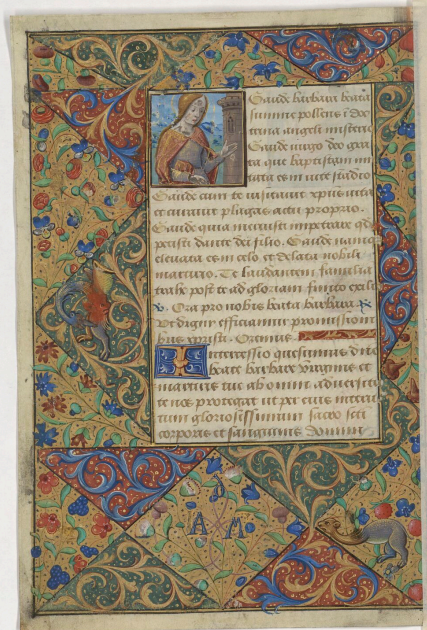 Gaude barbara beata
summe pollens i doc
trina angeli misterii
Gaude virgo deo gra
ta que baptistam imi
tata es in vite stadio
Gaude cum te visitavit xpus vita
et curavit plagas actu proprio.
Gaude quia meruisti impetrare qd
petisti dante dei filio. Gaude namqz
elevata es in celo et delata nobili
martirio. Te laudantem familia
trahe post te ad gloriam finito exili
v. Ora pro nobis beata barbara. R
Ut digni efficiamur promissioni
bus xpristi. Oremus
Intercessio quesumus dne
beate barbare virginis et
martiris tue ab omni adversita
te nos protegat ut per eius interve
tum gloriosissimum sacro scti
corporis et sanguinis domini
A M